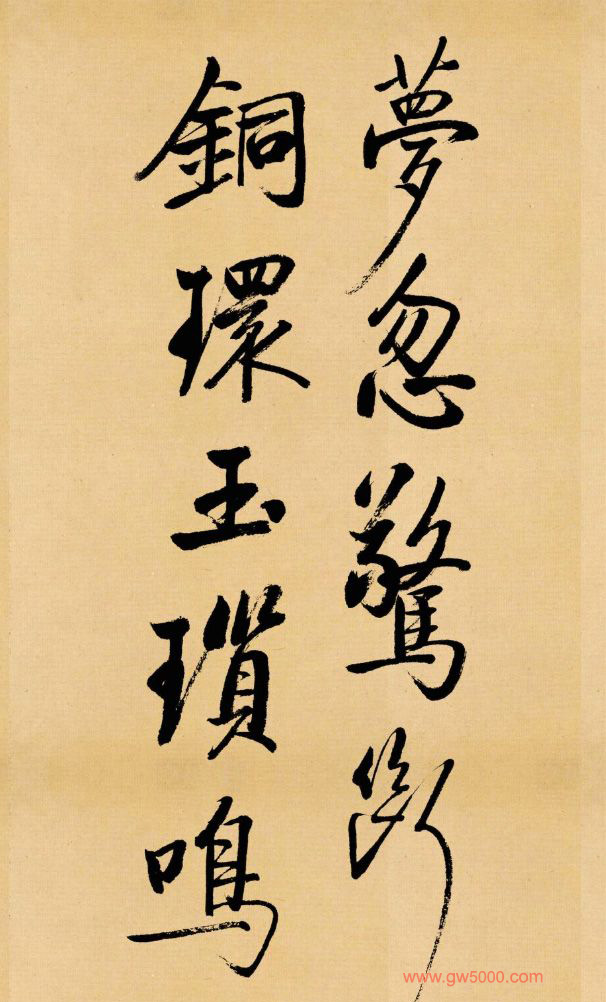 夢忽驚斷
銅環玉瑣鳴
www.gw5000.com